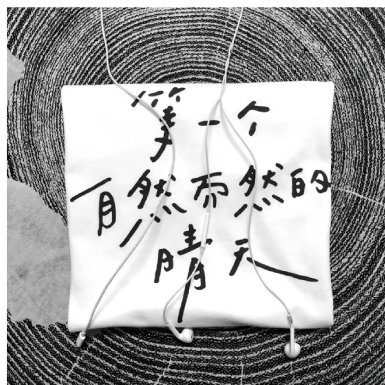 等一个
自然而然的
晴天